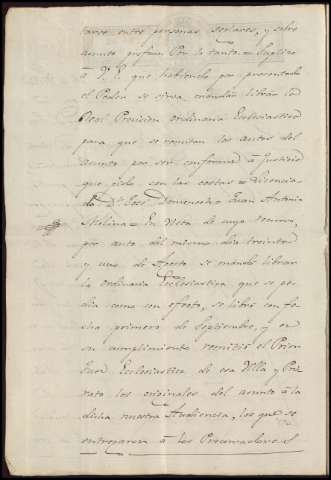 tarse entre personas seculares, y sobre
asunto profano Por lo tanto = Suplico
à V. E. que habiendo por presentado
el Poder se sirva mandar librar la
Real Provision ordinaria Eclesiastica
para que se remitan los autos del
asunto por ser conforme à Justicia
que pido con las costas = Licencia
do Dn. Josè Domenech = Juan Antonio
Molina = En vista de cuyo recurso,
por auto del mismo dia treinta
y uno de Agosto se mandò librar
la ordinaria Eclesiastica que se pe
dia como con efecto, se librò con fe
cha primero de Septiembre, y en
su cumplimiento remitiò el Prior
Juez Eclesiastico de esa Villa y Prio
rato los originales del asunto à la
dicha nuestra Audiencia, los que se
entregaron à los Procuradores